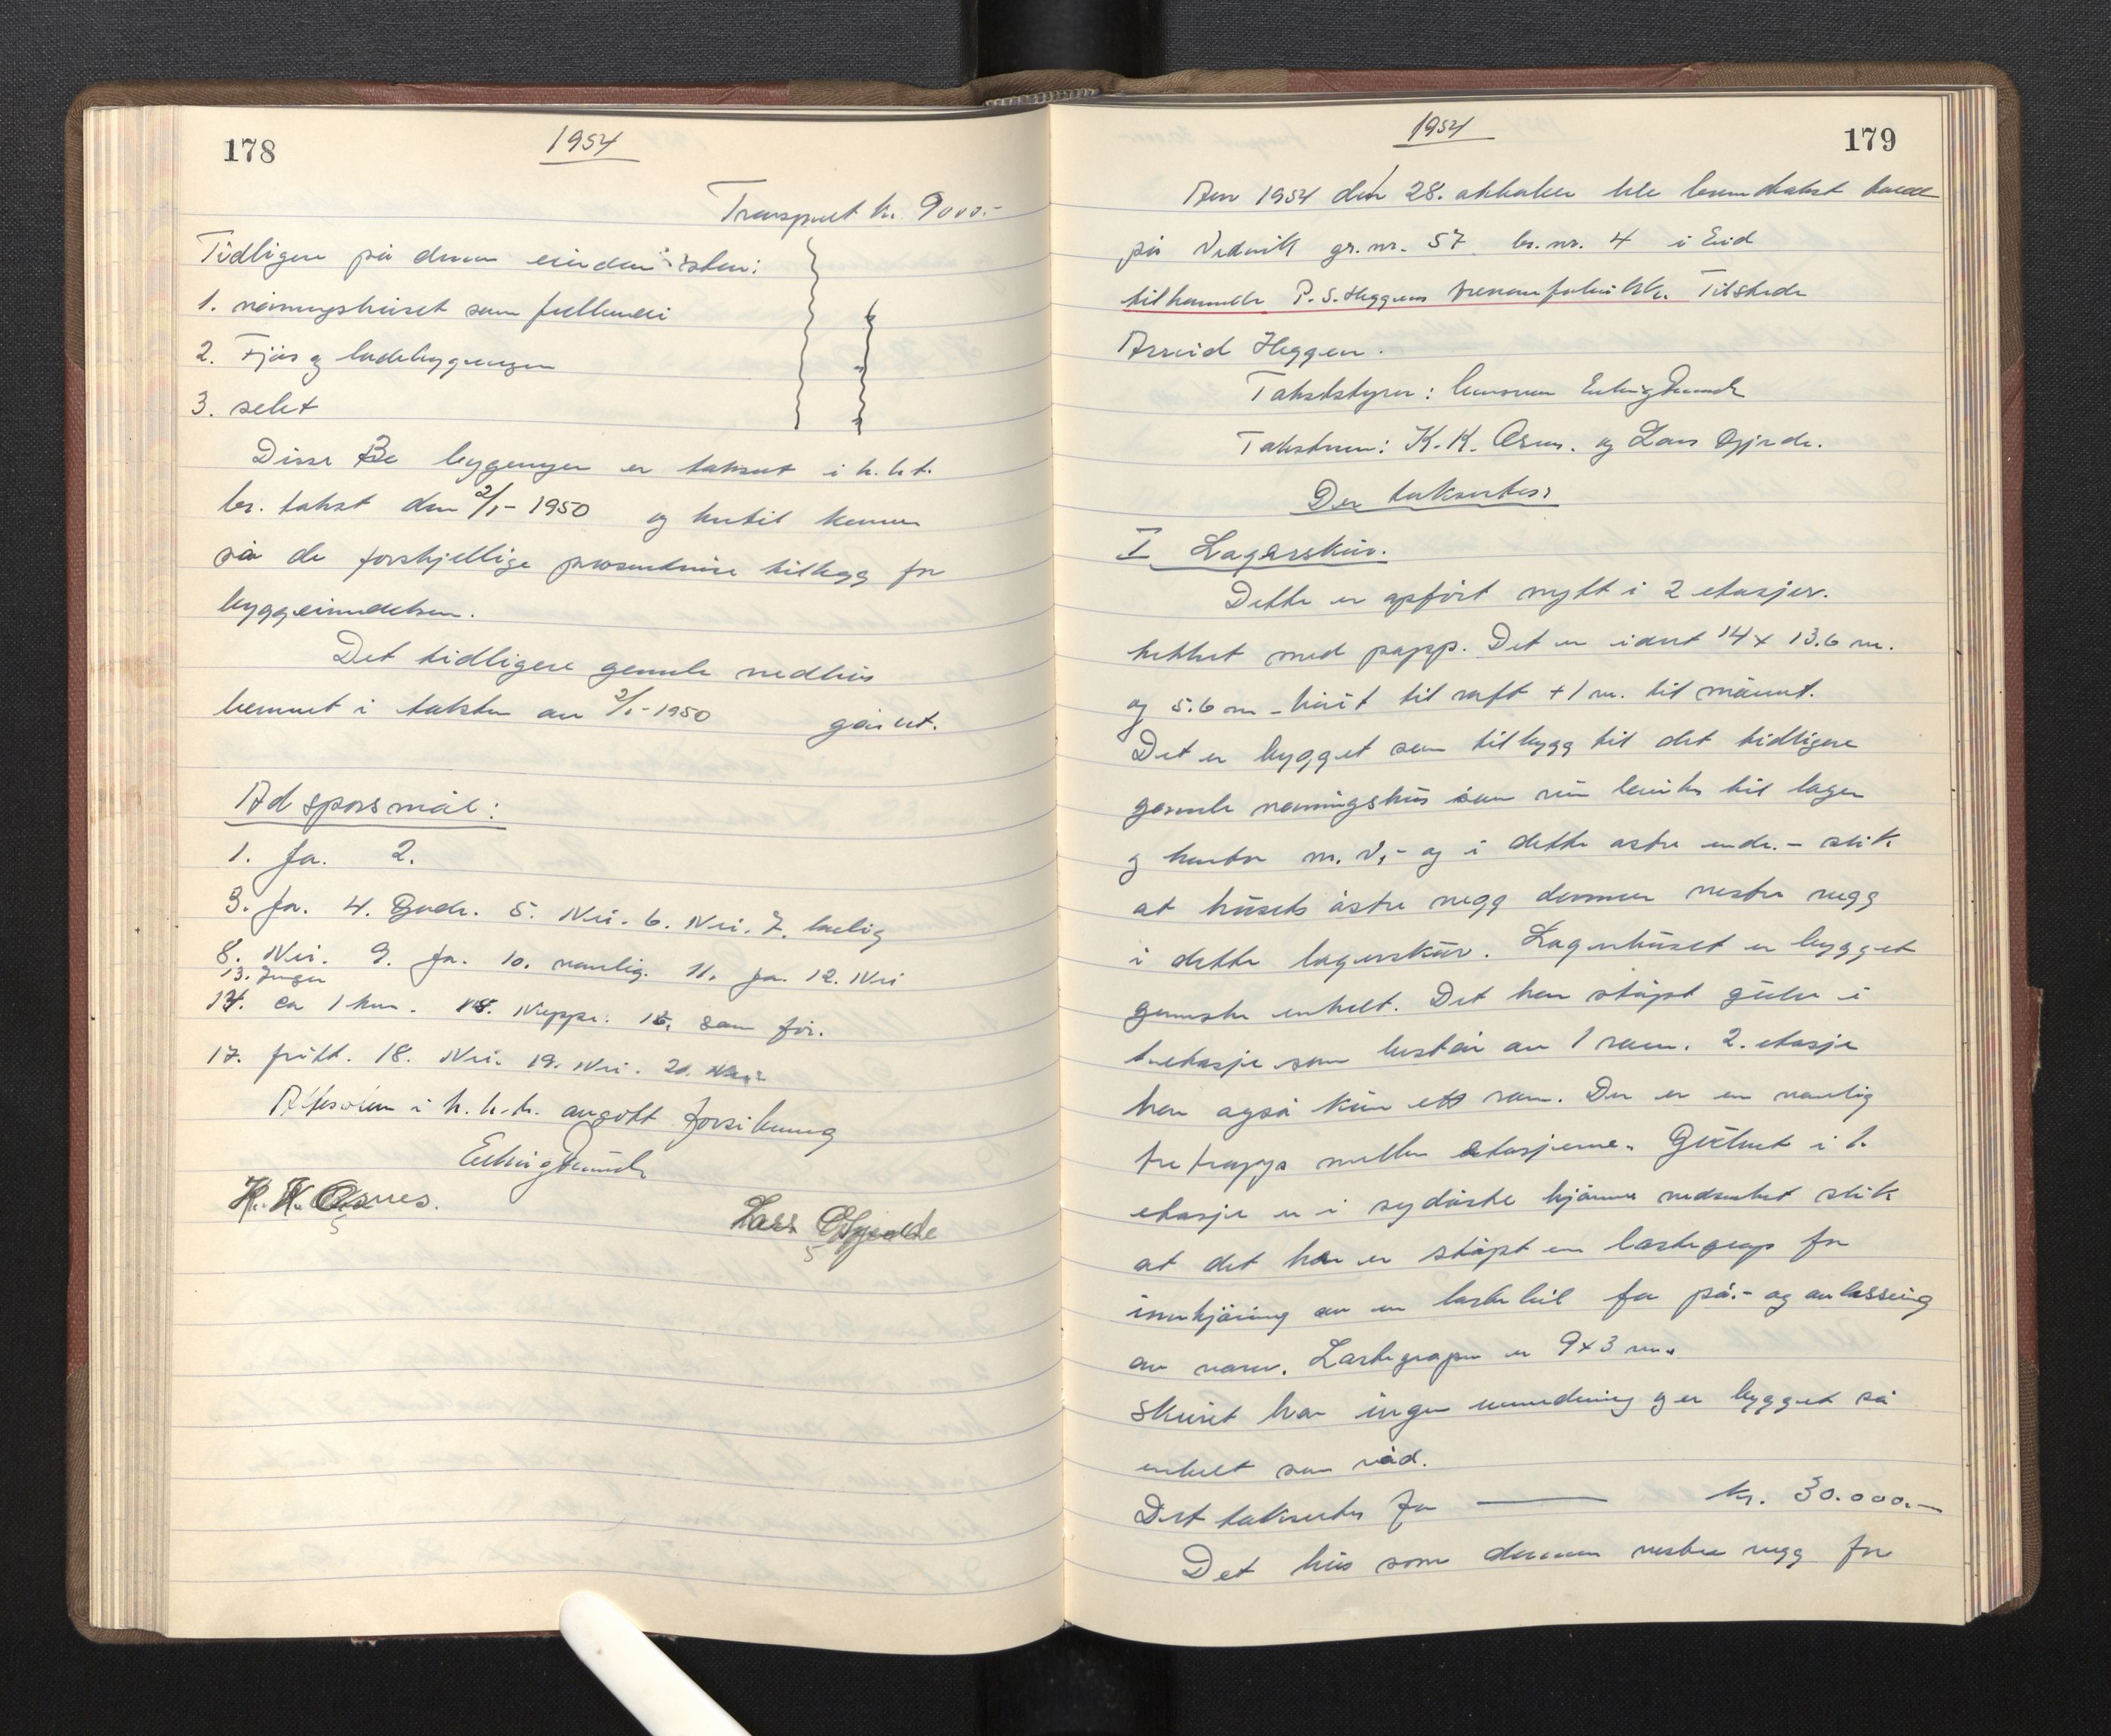 178
1954
Transport kr. 9000.-
Tidligere på denne eiendom
1. våningshuset
2. Fjøs og ladebygningen
3. selet
Disse bygninger er taksert i h.h.t.
br. takst den 2/1-1950 og hertil kommer
så de forskjellige prosentvise tillegg for
byggeinndeksen.
Det tidligere gamle vedhus
nevnt i taksten av 2/1-1950 går ut.
Ad spørsmål:
1. Ja. 2.
3. Ja. 4. Gode. 5. Nei. 6. Nei. 7. bolig
8. Nei. 9. Ja. 10. vanlig. 11. Ja. 12. Nei
13. Ingen
14. ca 1 km. 15. Neppe. 16. som før.
17. fritt. 18. Nei. 19. Nei. 20. Nei
i h.h.t. avgitt forsikring
K. K. Osnes.
Lars O. Gjerde
1954
179
Den 1954 den 28. oktober ble branntakst holdt
på Nedvik gr.nr. 57 br.nr. 4 i Eid
tilhørende P. S. Heggens Tilstede
Arvid Heggen.
Takstmenn: K. K. Osnes. og Lars Gjerde.
Der takseertes:
I Lagerskur.
Dette er oppført nytt i 2 etasjer.
tekket med papp. Det er idert 14 x 13.6 m.
og 5.6 m - höit til raft + 1 m. til mönet.
Det er bygget som tilbygg til det tidligere
gamle våningshus som nu benyttes til lager
og kontor m.v,- og i dette østre ende.- slik
at husets östre vegg danner vestre vegg
i dette lagerskur. Lagerhuset er bygget
ganske enkelt. Det har stöpt gulv i
1. etasje som består av 1 rom. 2. etasje
har også kun ett rom. Der er en vanlig
tretrapp mellom etasjerne. Gulvet i 1.
etasje er i sydöstre hjörne nedsenket slik
at det her er stöpt en lastegrop for
innkjöring av en lastebil for på.- og avlessing
av varer. Lastegropen er 9x3 m.
Skuret har ingen innredning og er bygget så
enkelt som råd.
Det takseres for kr. 30.000.-
Det hus som danner vestre vegg for